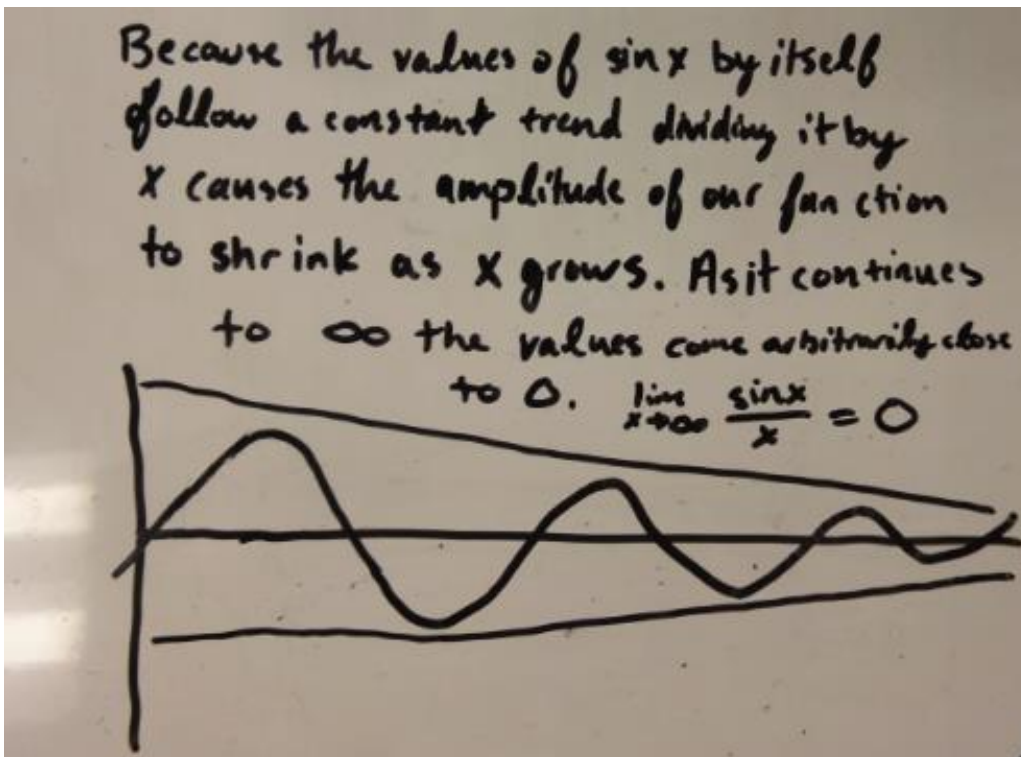 Because the values of sin x by itself
follow a constant trend dividing it by
x causes the amplitude of our function
to shrink as x grows. As it continues
to ∞ the values come arbitrarily close
to 0. lim x→∞ sinx/x = 0